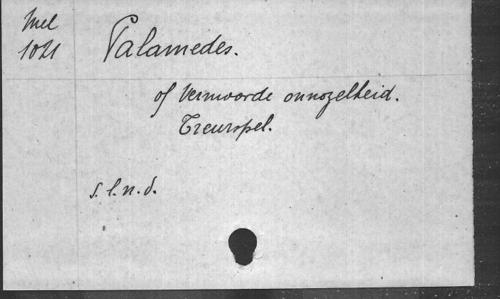 Mel
1021
Palamedes.
of Vermoorde onnozelheid.
Treurspel.
s. l. n. d.